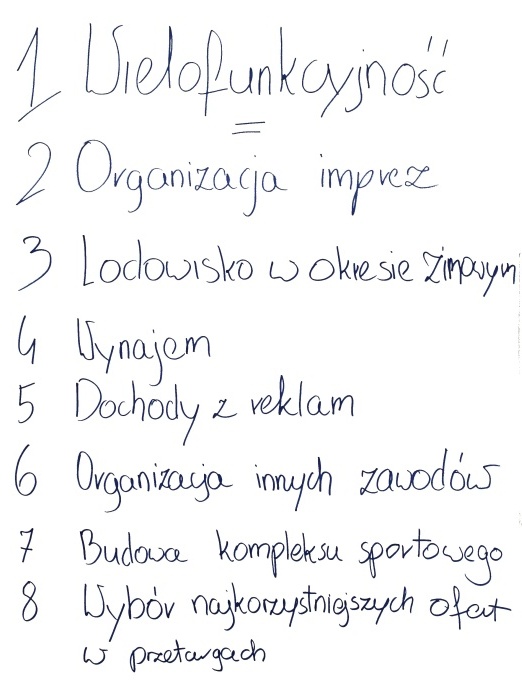 1 Wielofunkcyjność
2 Organizacja imprez
3 Lodowisko w okresie zimowym
4 Wynajem
5 Dochody z reklam
6 Organizacja innych zawodów
7 Budowa kompleksu sportowego
8 Wybór najkorzystniejszych ofert
w przetargach